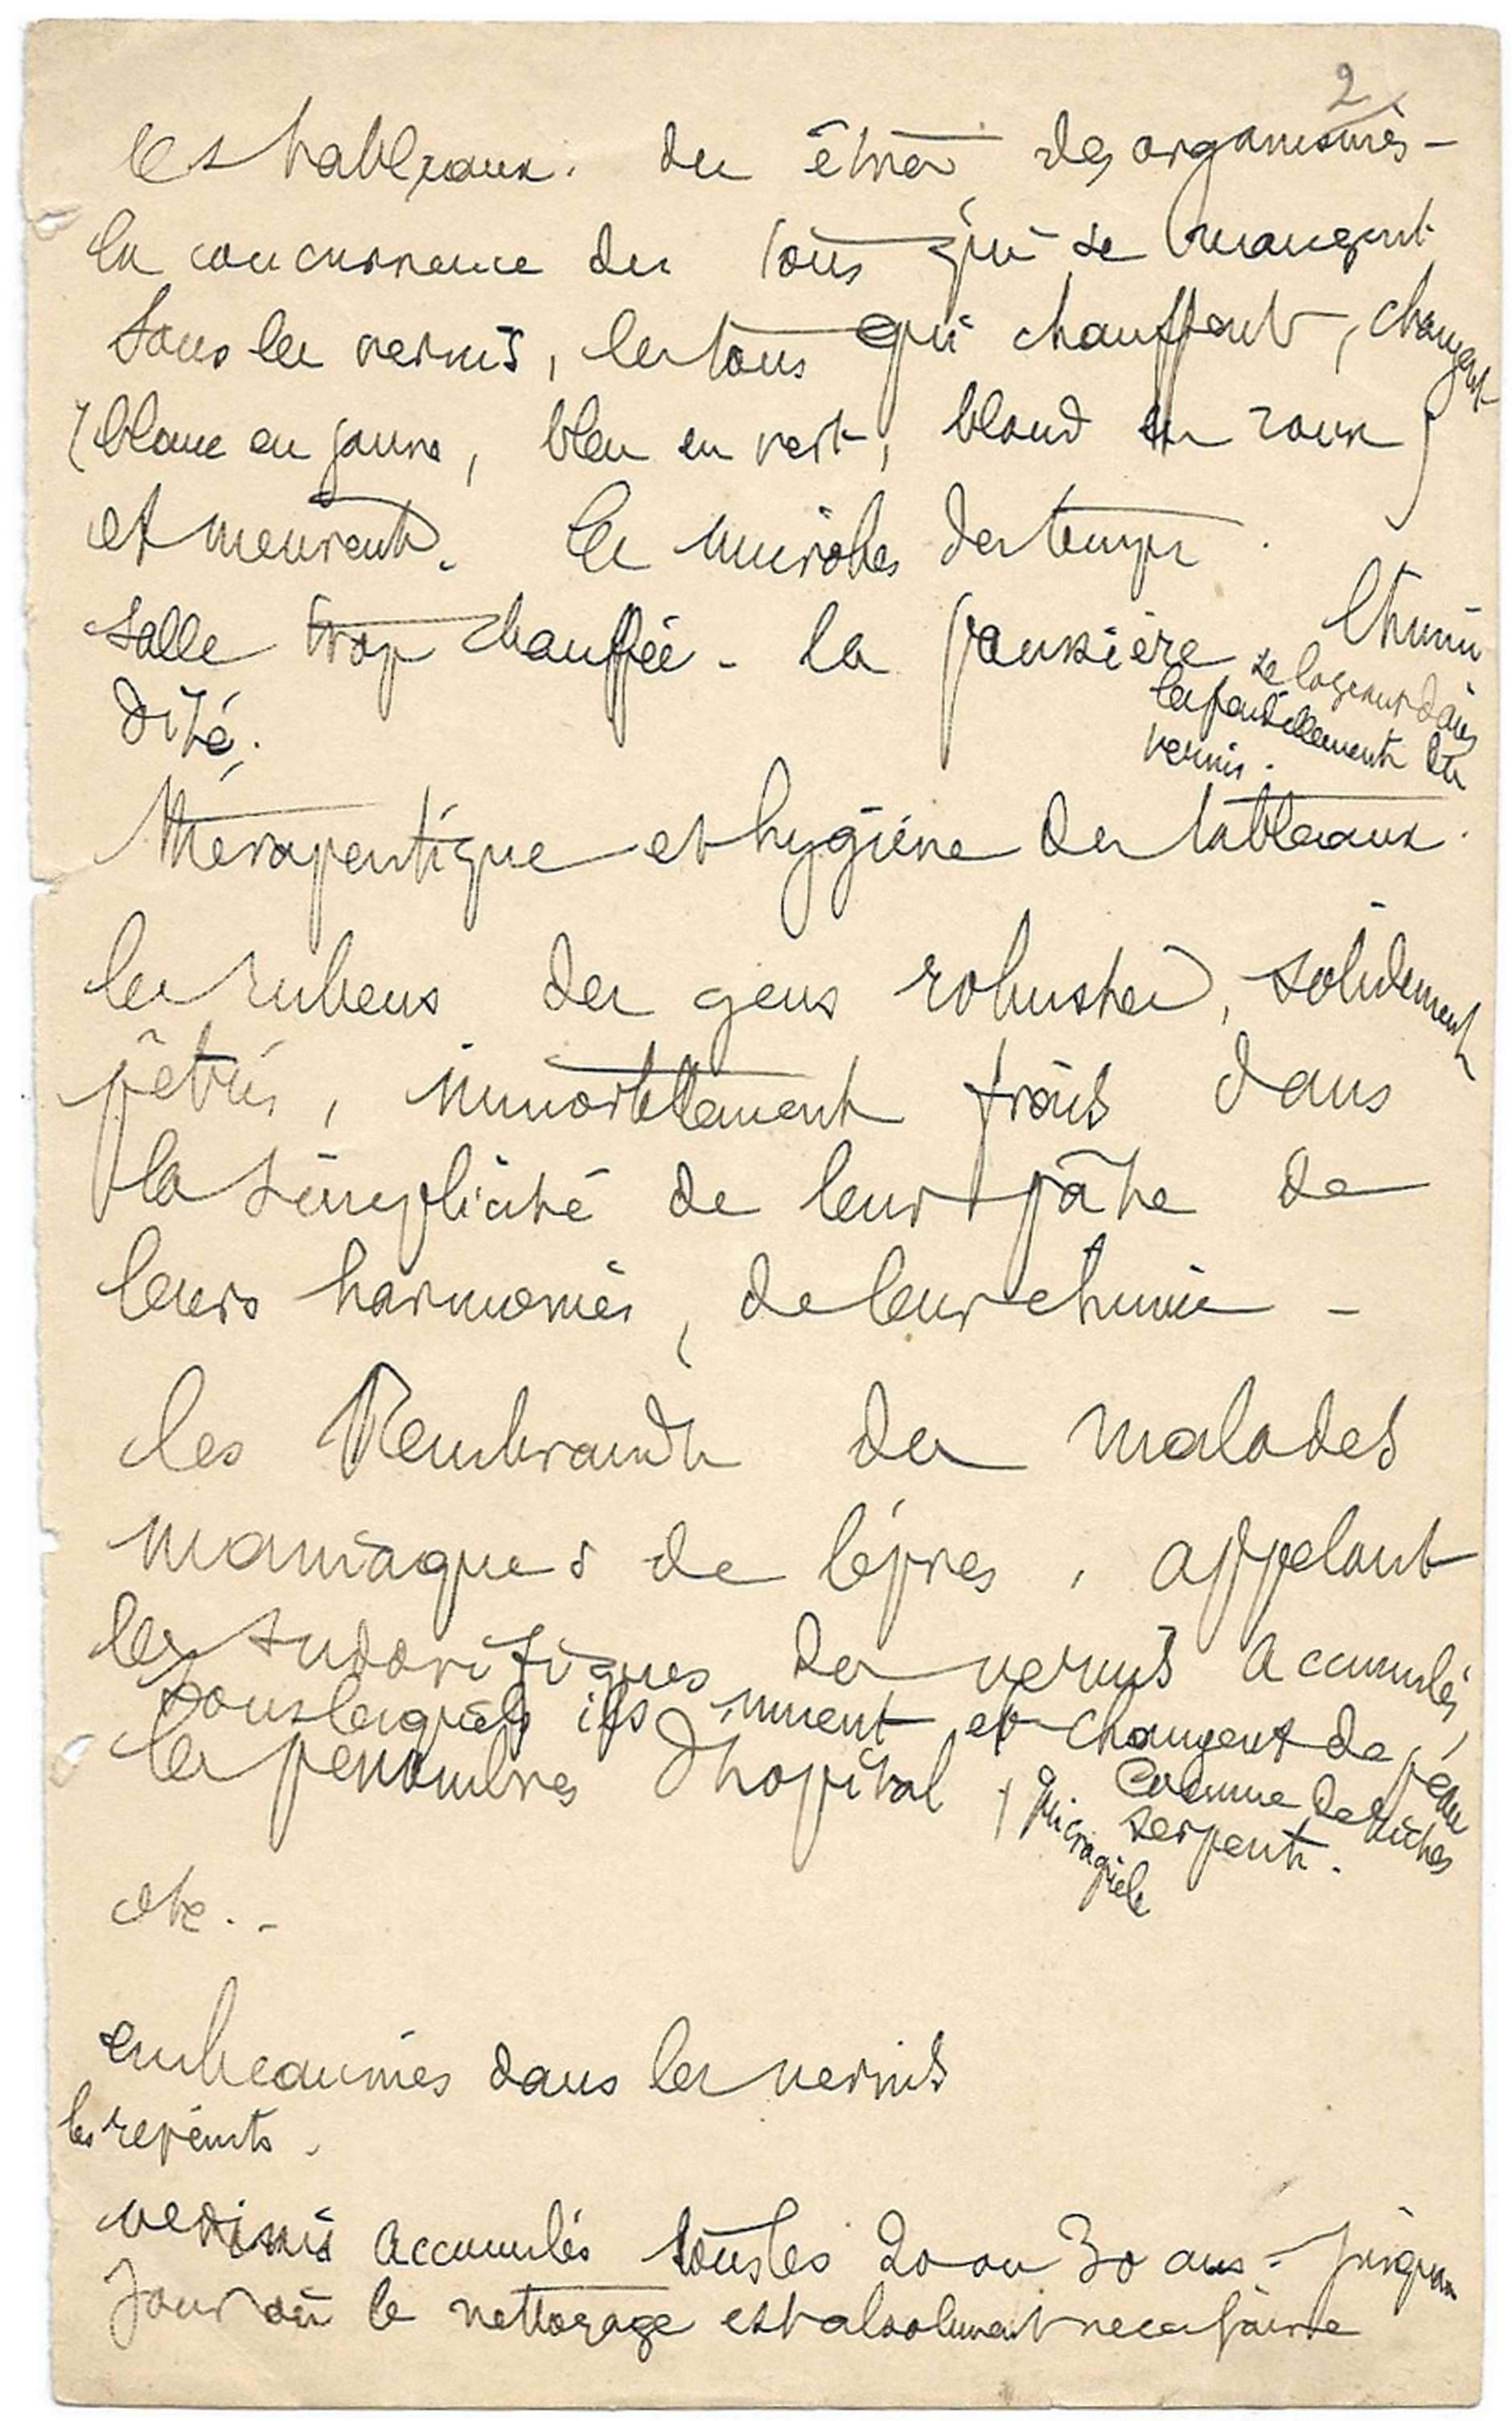 2
les tableaux. des êtres des organismes -
la concurrence des tons qui se mangent
sous les vernis, les tons qui chauffent, changent
(blanc en jaune, bleu en vert, blond en roux)
et meurent. les microbes des temps.
salle trop chauffée - la poussière se logeant dans
les fendillements du
vernis.
l'humi
dité.
thérapeutique et hygiène des tableaux.
les rubens des gens robustes, solidement
pétris, immortellement frais dans
la simplicité de leur pâte de
leurs harmonies, de leur chimie -
les Rembrandt des malades
maniaques de lèpres, appelant
les sudorifiques des vernis accumulés,
sous lesquels ils muent et changent de peau
comme de riches
serpents.
les penombres d'hopital
etc..
embeaumés dans les vernis
les repeints.
vernis accumulés tous les 20 ou 30 ans = jusqu'au
jour où le nettoyage est absolument necessaire